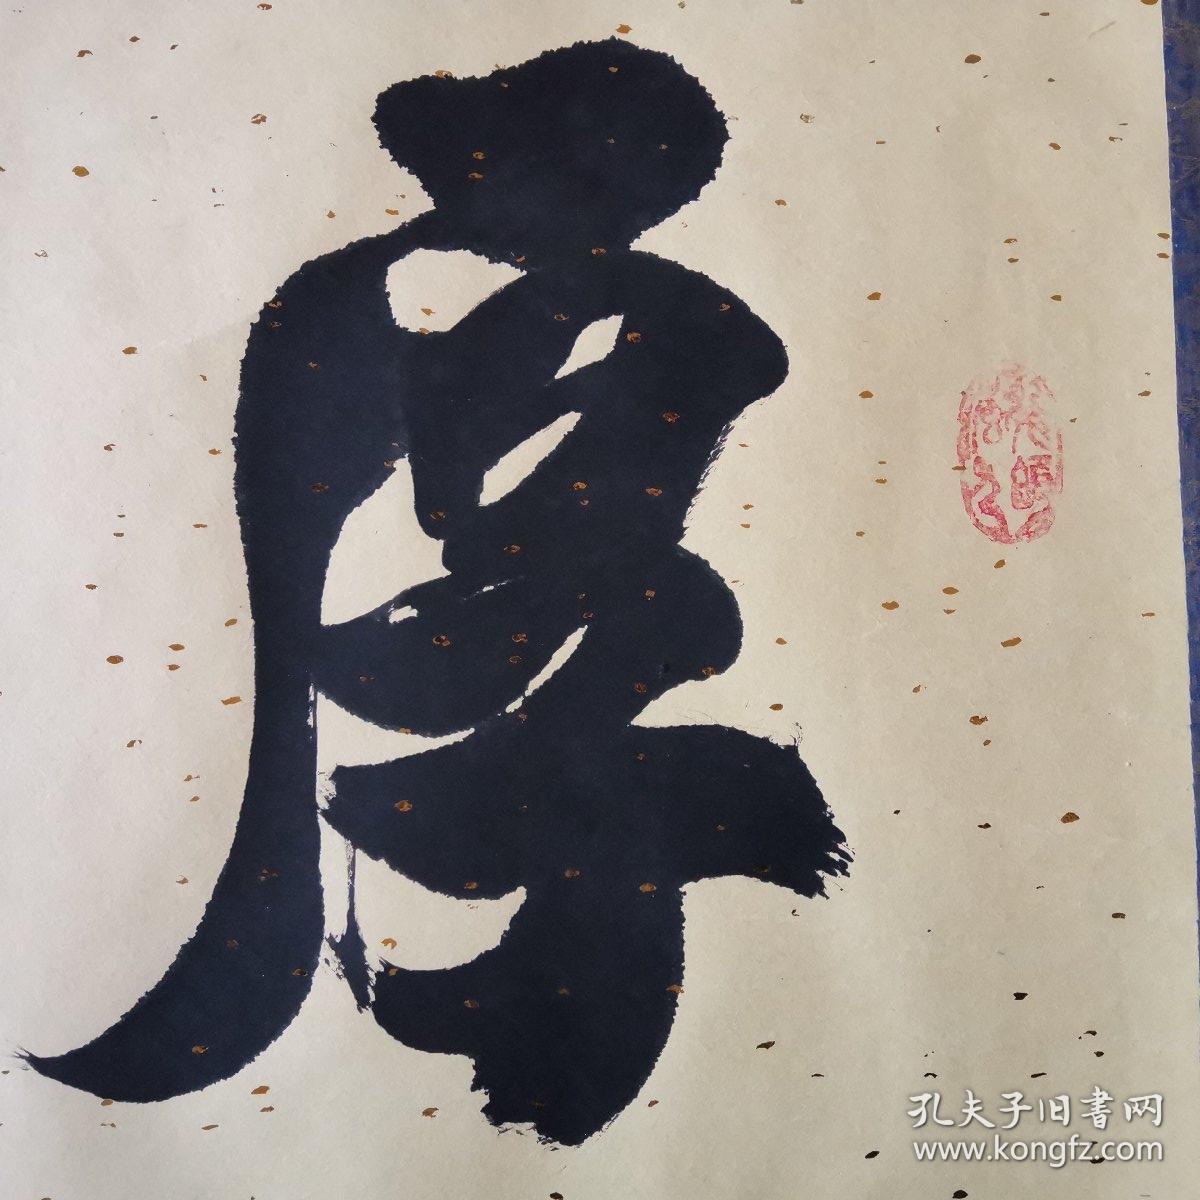 厚
孔夫子旧書网
www.kongfz.com